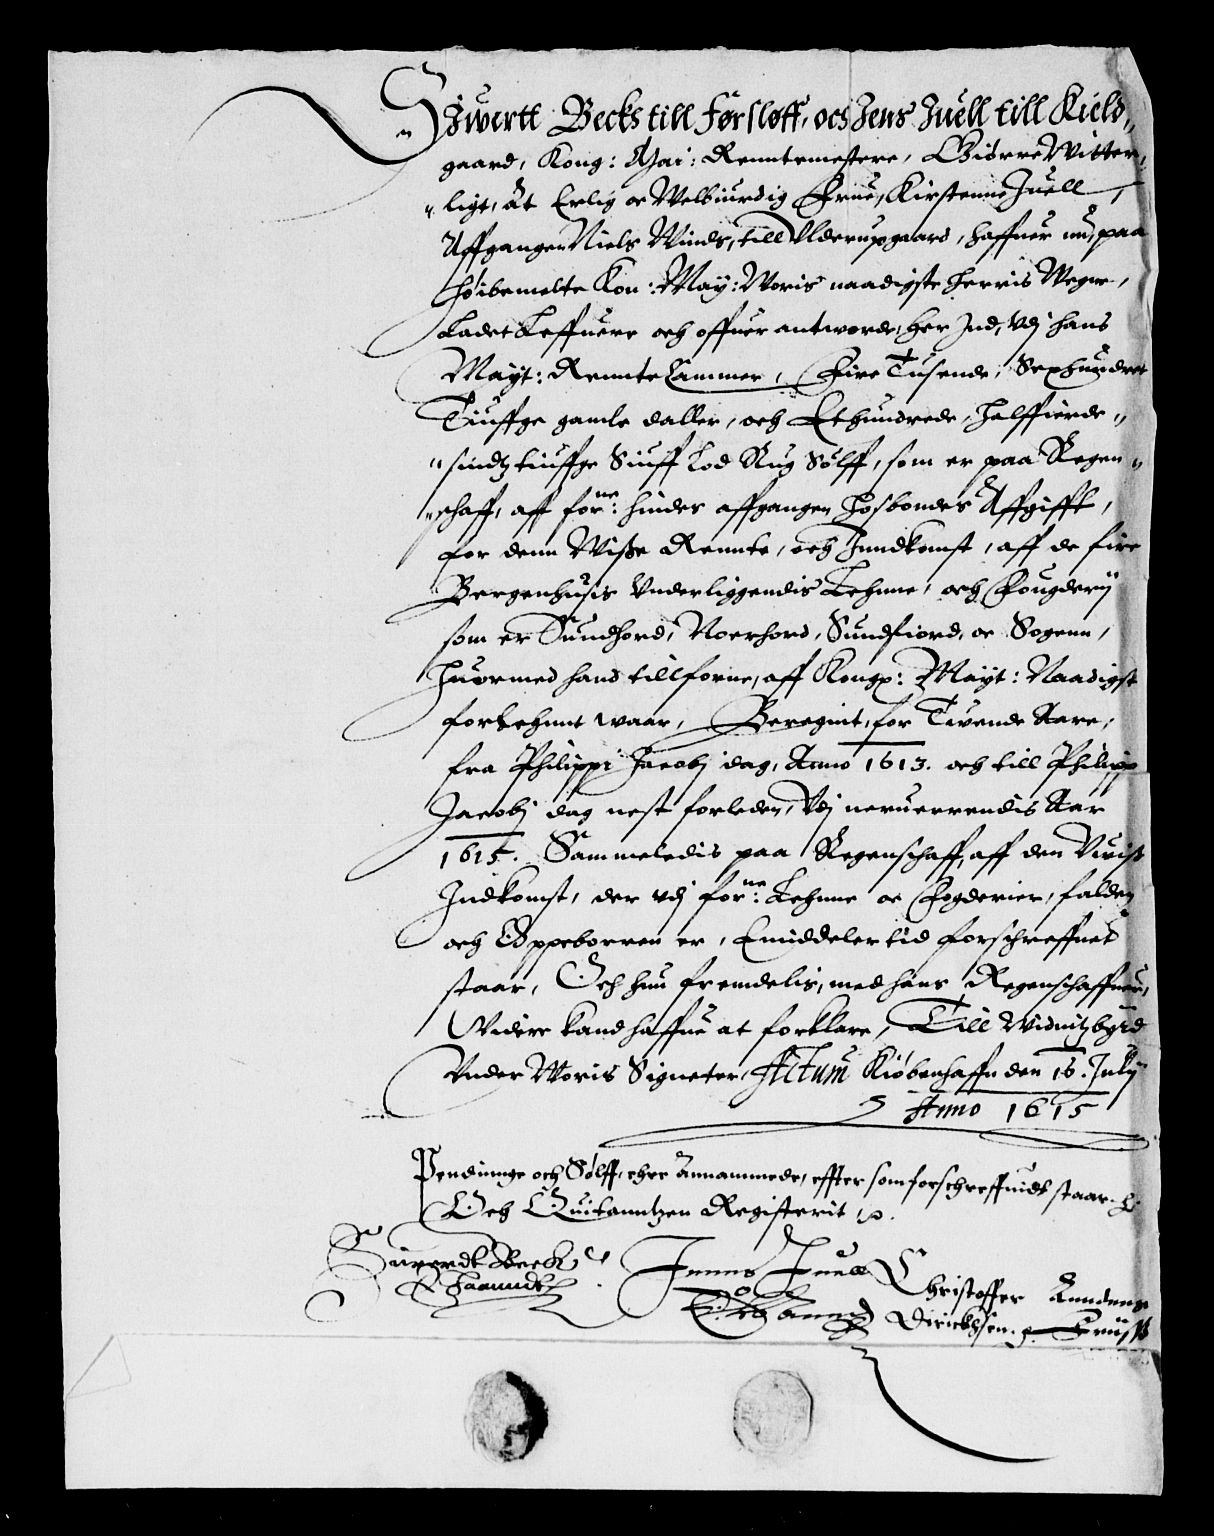 Siuertt Becks till Førsløff, och Jens Juell till Kield,,
gaard, Kong: Mai: Renntemestere, Giørre Witter,,
,,ligt, at Erlig oc Welbiurdig Frue, Kirstenne Juell,
Affgangen Niels Winds, till Ulderupgaard, haffuer nu, paa
høibemelte Kon: May: Woris naadigste herris Wegne,
Ladet Leffuere och offuer antworde, her Ind, vdj hans
Mayt: Rennte Cammer, Fire Tusende, Sexhundret
Tiuffge gamle daller, och Ethundrede, halffierde,,
,,sindztiuffge Siuff Lod Kug Sølff, som er paa Regen,,
,,schaff, aff forne: hindes affgangen Hosbondes Affgifft,
for denn Wiße Rennte, och Inndkomst, aff de fire
Bergenhusis Vnderliggendis Lehnne, och Fougderij
som er Sundhord, Noerhord, Sundfiord, oc Sogenn,
Huormed hand tillforne, aff Kong: Mayt: Naadigst
forlehnnt waar, Beregint, for Tvende Aare,
fra Philippi Jacobj dag, Anno 1613. och till Philippi
Jacobj dag nest forleden, Vdj neruerrendis Aar
1615. Sammeledis paa Regenschaff, aff den Vviß
Indkomst, der vdj forne: Lehnne oc Fogderier, falden
och Oppeborren er, Emiddeler tid forschreffnet
staar, Och hun fremdelis, med hans Regenschaffuer,
Widere kand haffue at forklare, Till Widnitzbyrd
Vnder Woris Signeter, Actum Kiøbenhaffn den 16. Julij
Anno 1615
Pendinnge och Sølff, ehre Annammede, effter som forschreffuidt staar.
Och Quitanntzen Registerit
Siuerdt Beck
Jenns Juell
Christoffer
E. haanndt
E. haannd
Dirichsen.